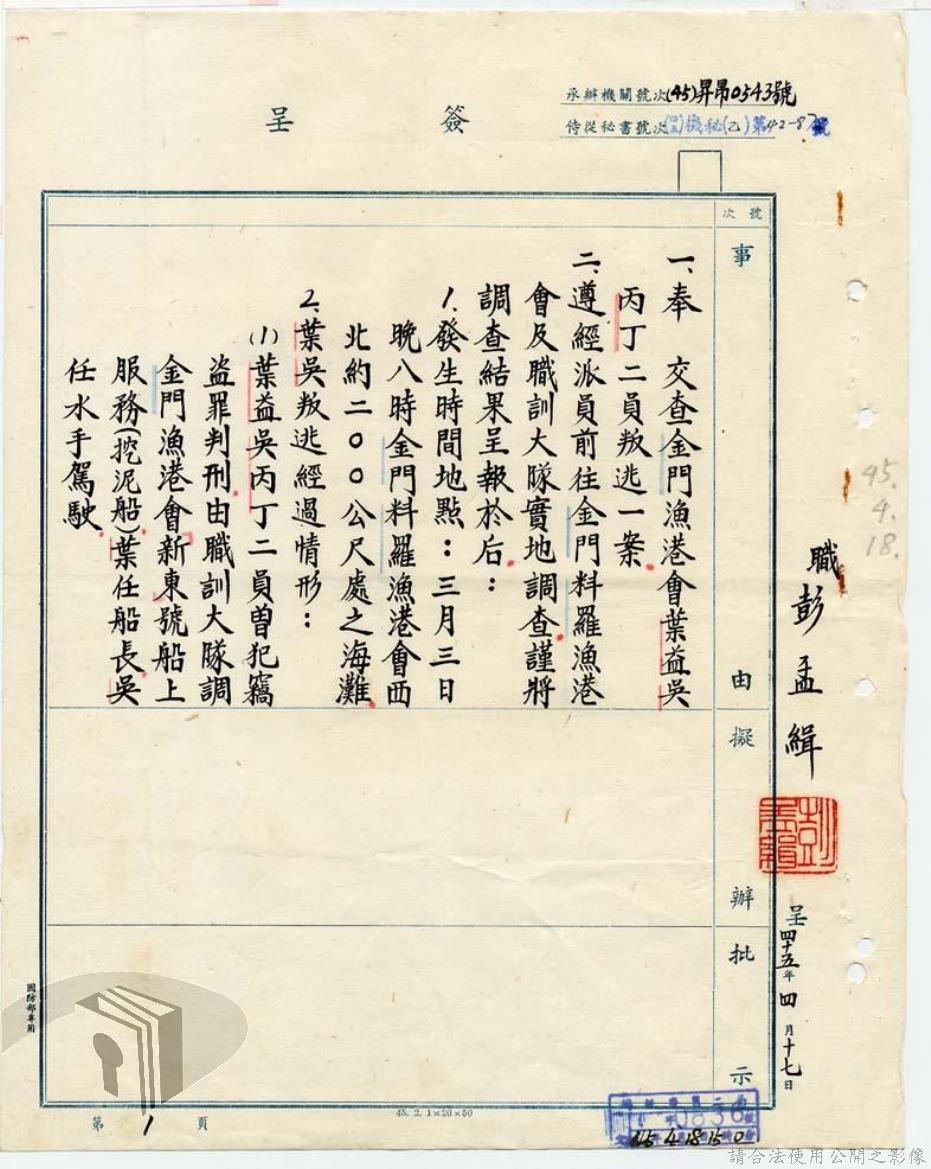 簽呈
承辦機關號次(45)昇昂0543號
侍從秘書號次(呈)機秘(乙)第42-87號
號次
事由
一、奉　交查金門漁港會葉益吳
丙丁二員叛逃一案
二、遵經派員前往金門料羅漁港
會及職訓大隊實地調查謹將
調查結果呈報於后：
1.發生時間地點：三月三日
晚八時金門料羅漁港會西
北約二〇〇公尺處之海灘
2.葉吳叛逃經過情形：
(1)葉益吳丙丁二員曾犯竊
盜罪判刑由職訓大隊調
金門漁港會新東號船上
服務(挖泥船)葉任船長吳
任水手駕駛
擬辦
批示
職彭孟緝
呈四十五年四月十七日
45.
4.
18.
國防部專用
第1頁
45. 2. 1×20×50
0836
45 4 18 15 0
請合法使用公開之影像